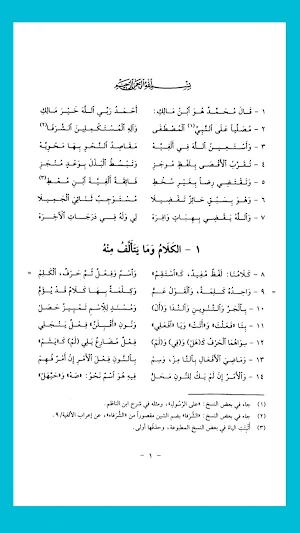 بسم الله الرحمن الرحيم
١ - قَالَ مُحَمَّدٌ هُوَ ابْنُ مَالِكِ: أَحْمَدُ رَبِّي اللَّهَ خَيْرَ مَالِكِ
٢ - مُصَلِّياً عَلَى النَّبِيِّ(١) الْمُصْطَفَى وَآلِهِ الْمُسْتَكْمِلِينَ الشَّرَفَا(٢)
٣ - وَأَسْتَعِينُ اللَّهَ فِي أَلْفِيَّهْ مَقَاصِدُ النَّحْوِ بِهَا مَحْوِيَّهْ
٤ - تُقَرِّبُ الْأَقْصَى بِلَفْظٍ مُوجَزِ وَتَبْسُطُ الْبَذْلَ بِوَعْدٍ مُنْجَزِ
٥ - وَتَقْتَضِي رِضاً بِغَيْرِ سُخْطِ فَائِقَةً أَلْفِيَّةَ ابْنِ مُعْطِ(٣)
٦ - وَهْوَ بِسَبْقٍ حَائِزٌ تَفْضِيلَا مُسْتَوْجِبٌ ثَنَائِيَ الْجَمِيلَا
٧ - وَاللَّهُ يَقْضِي بِهِبَاتٍ وَافِرَهْ لِي وَلَهُ فِي دَرَجَاتِ الْآخِرَهْ
١ - الكَلَامُ وَمَا يَتَأَلَّفُ مِنْهُ
٨ - كَلَامُنَا: لَفْظٌ مُفِيدٌ، كـ«اسْتَقِمْ» وَاسْمٌ وَفِعْلٌ ثُمَّ حَرْفٌ، الْكَلِمْ
٩ - وَاحِدُهُ كَلِمَةٌ، وَالْقَوْلُ عَمّْ وَكِلْمَةٌ بِهَا كَلَامٌ قَدْ يُؤَمّْ
١٠ - بِالْجَرِّ وَالتَّنْوِينِ وَالنِّدَا وَ(أَلْ) وَمُسْنَدٍ لِلِاسْمِ تَمْيِيزٌ حَصَلْ
١١ - بِتَا «فَعَلْتَ» وَ«أَتَتْ» وَيَا «افْعَلِي» وَنُونِ «أَقْبِلَنَّ» فِعْلٌ يَنْجَلِي
١٢ - سِوَاهُمَا الْحَرْفُ كَـ(هَلْ) وَ(فِي) وَ(لَمْ) فِعْلٌ مُضَارِعٌ يَلِي (لَمْ) كَـ«يَشَمّْ»
١٣ - وَمَاضِيَ الْأَفْعَالِ بِالتَّا مِزْ، وَسِمْ بِالنُّونِ فِعْلَ الْأَمْرِ إِنْ أَمْرٌ فُهِمْ
١٤ - وَالْأَمْرُ إِنْ لَمْ يَكُ لِلنُّونِ مَحَلّْ فِيهِ هُوَ اسْمٌ نَحْوُ: «صَهْ» وَ«حَيَّهَلْ»
(١) جاء في بعض النسخ: «على الرَّسُولِ»، ومثله في شرح ابن الناظم.
(٢) جاء في بعض النسخ: «الشُّرَفَا» بضم الشين مقصوراً من «الشُّرَفَاء»، عن إعراب الألفية/٩.
(٣) أُثبتت الياء في بعض النسخ المطبوعة، وحذفُها أولى.
- ١ -